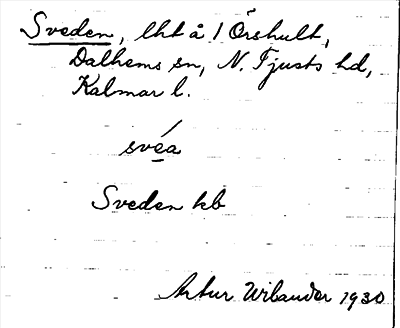 Sveden, lht å 1 Örshult,
Dalhems sn, N. Tjusts hd,
Kalmar l.
svéa
Sveden kb
Artur Wilander 1930